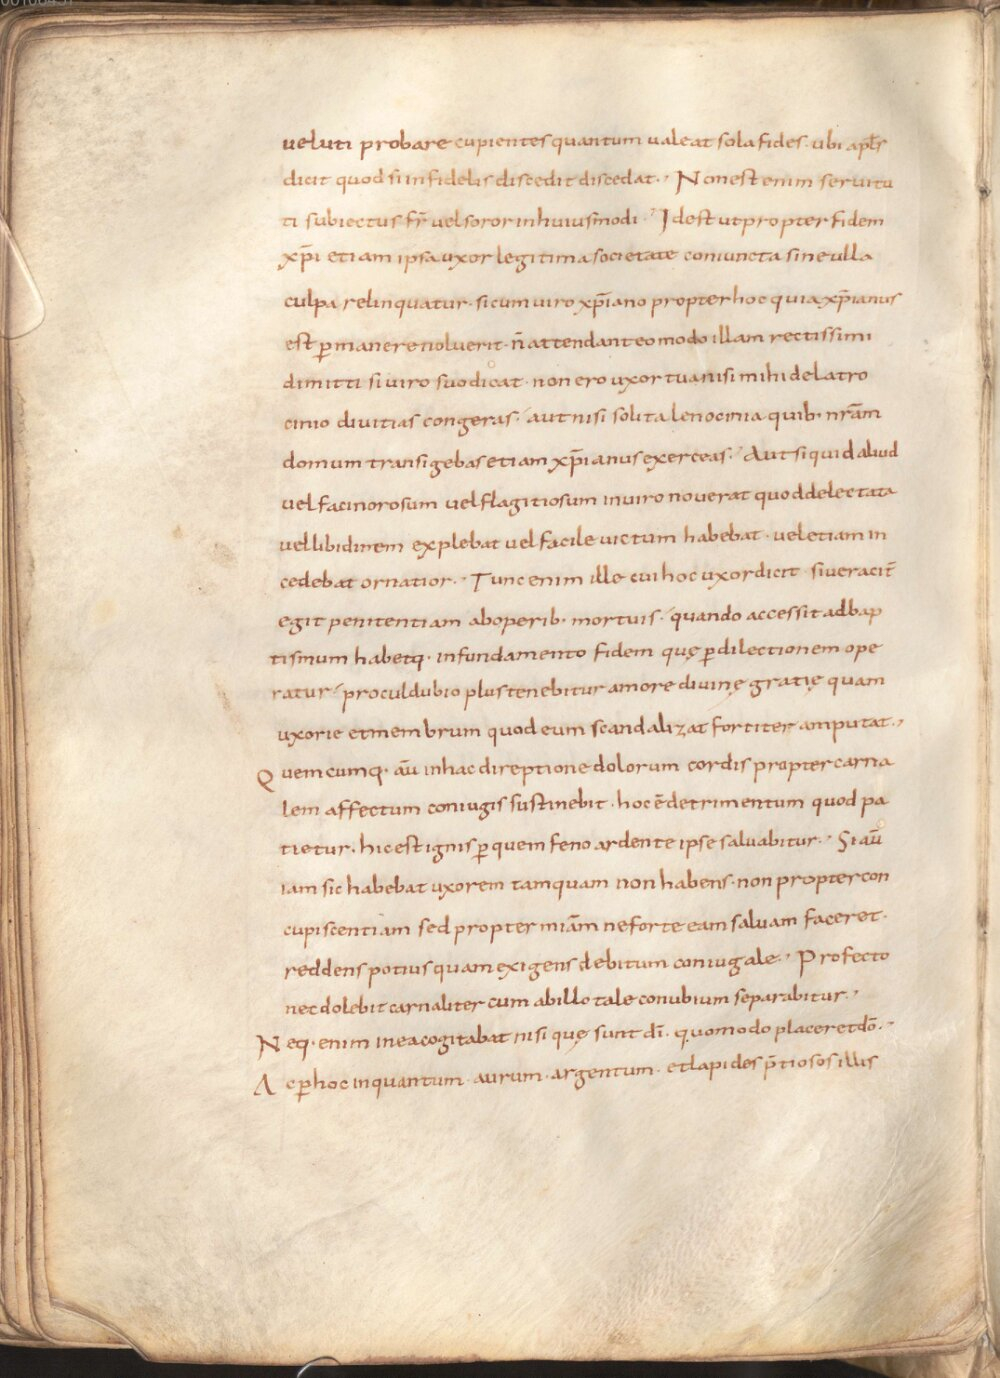 ueluti probare cupientes quantum ualeat sola fides. ubi apl̅s
dicit quod si infidelis discedit discedat. Non est enim seruitu
ti subiectus fr̅ uel soror in huius modi. Idest ut propter fidem
xp̅i etiam ipsa uxor legitima societate coniuncta sine ulla
culpa relinquatur. si cum uiro xp̅iano propter hoc quia xp̅ianus
est ꝑmanere noluerit. n̅ attendant eo modo illam rectissimi
dimitti si uiro suo dicat. non ero uxor tua nisi mihi de latro
cinio diuitias congeras. aut nisi solita lenocinia quib· nr̅am
domum transigebas etiam xp̅ianus exerceas. Aut si quid aliud
uel facinorosum uel flagitiosum in uiro nouerat quod delectata
uel libidinem explebat uel facile uictum habebat. uel etiam in
cedebat ornatior. Tunc enim ille cui hoc uxor dicit si ueracit̅
egit penitentiam ab operib· mortuis. quando accessit ad bap
tismum habetq· in fundamento fidem quę ꝑ dilectionem ope
ratur. proculdubio plus tenebitur amore diuinę gratię quam
uxorie et membrum quod eum scandalizat fortiter amputat.
Quemcumq· au̅ in hac direptione dolorum cordis propter carna
lem affectum coniugis sustinebit. hoc e̅ detrimentum quod pa
tietur. hic est ignis ꝑ quem feno ardente ipse saluabitur. Si au̅
iam sic habebat uxorem tamquam non habens. non propter con
cupiscentiam sed propter mia̅m ne forte eam saluam faceret.
reddens potius quam exigens debitum coniugale. Profecto
nec dolebit carnaliter cum ab illo tale conubium separabitur.
Neq· enim in ea cogitabat nisi quę sunt di̅. quomodo placeret do̅.
Ac ꝑ hoc in quantum. aurum. argentum. et lapides p̅tiosos illis